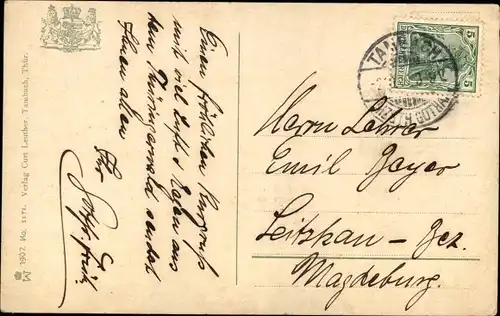 Einen fröhlichen Kurgruß
mit viel Luft & Regen aus
dem Thüringerwald sendet
Ihnen allen
Ihr
Herrn Lehrer
Emil Geyer
Leitzkau - Bez.
Magdeburg.
TAMBACH
5
5
1907. No. 1171. Verlag Curt Leuther, Tambach, Thür.